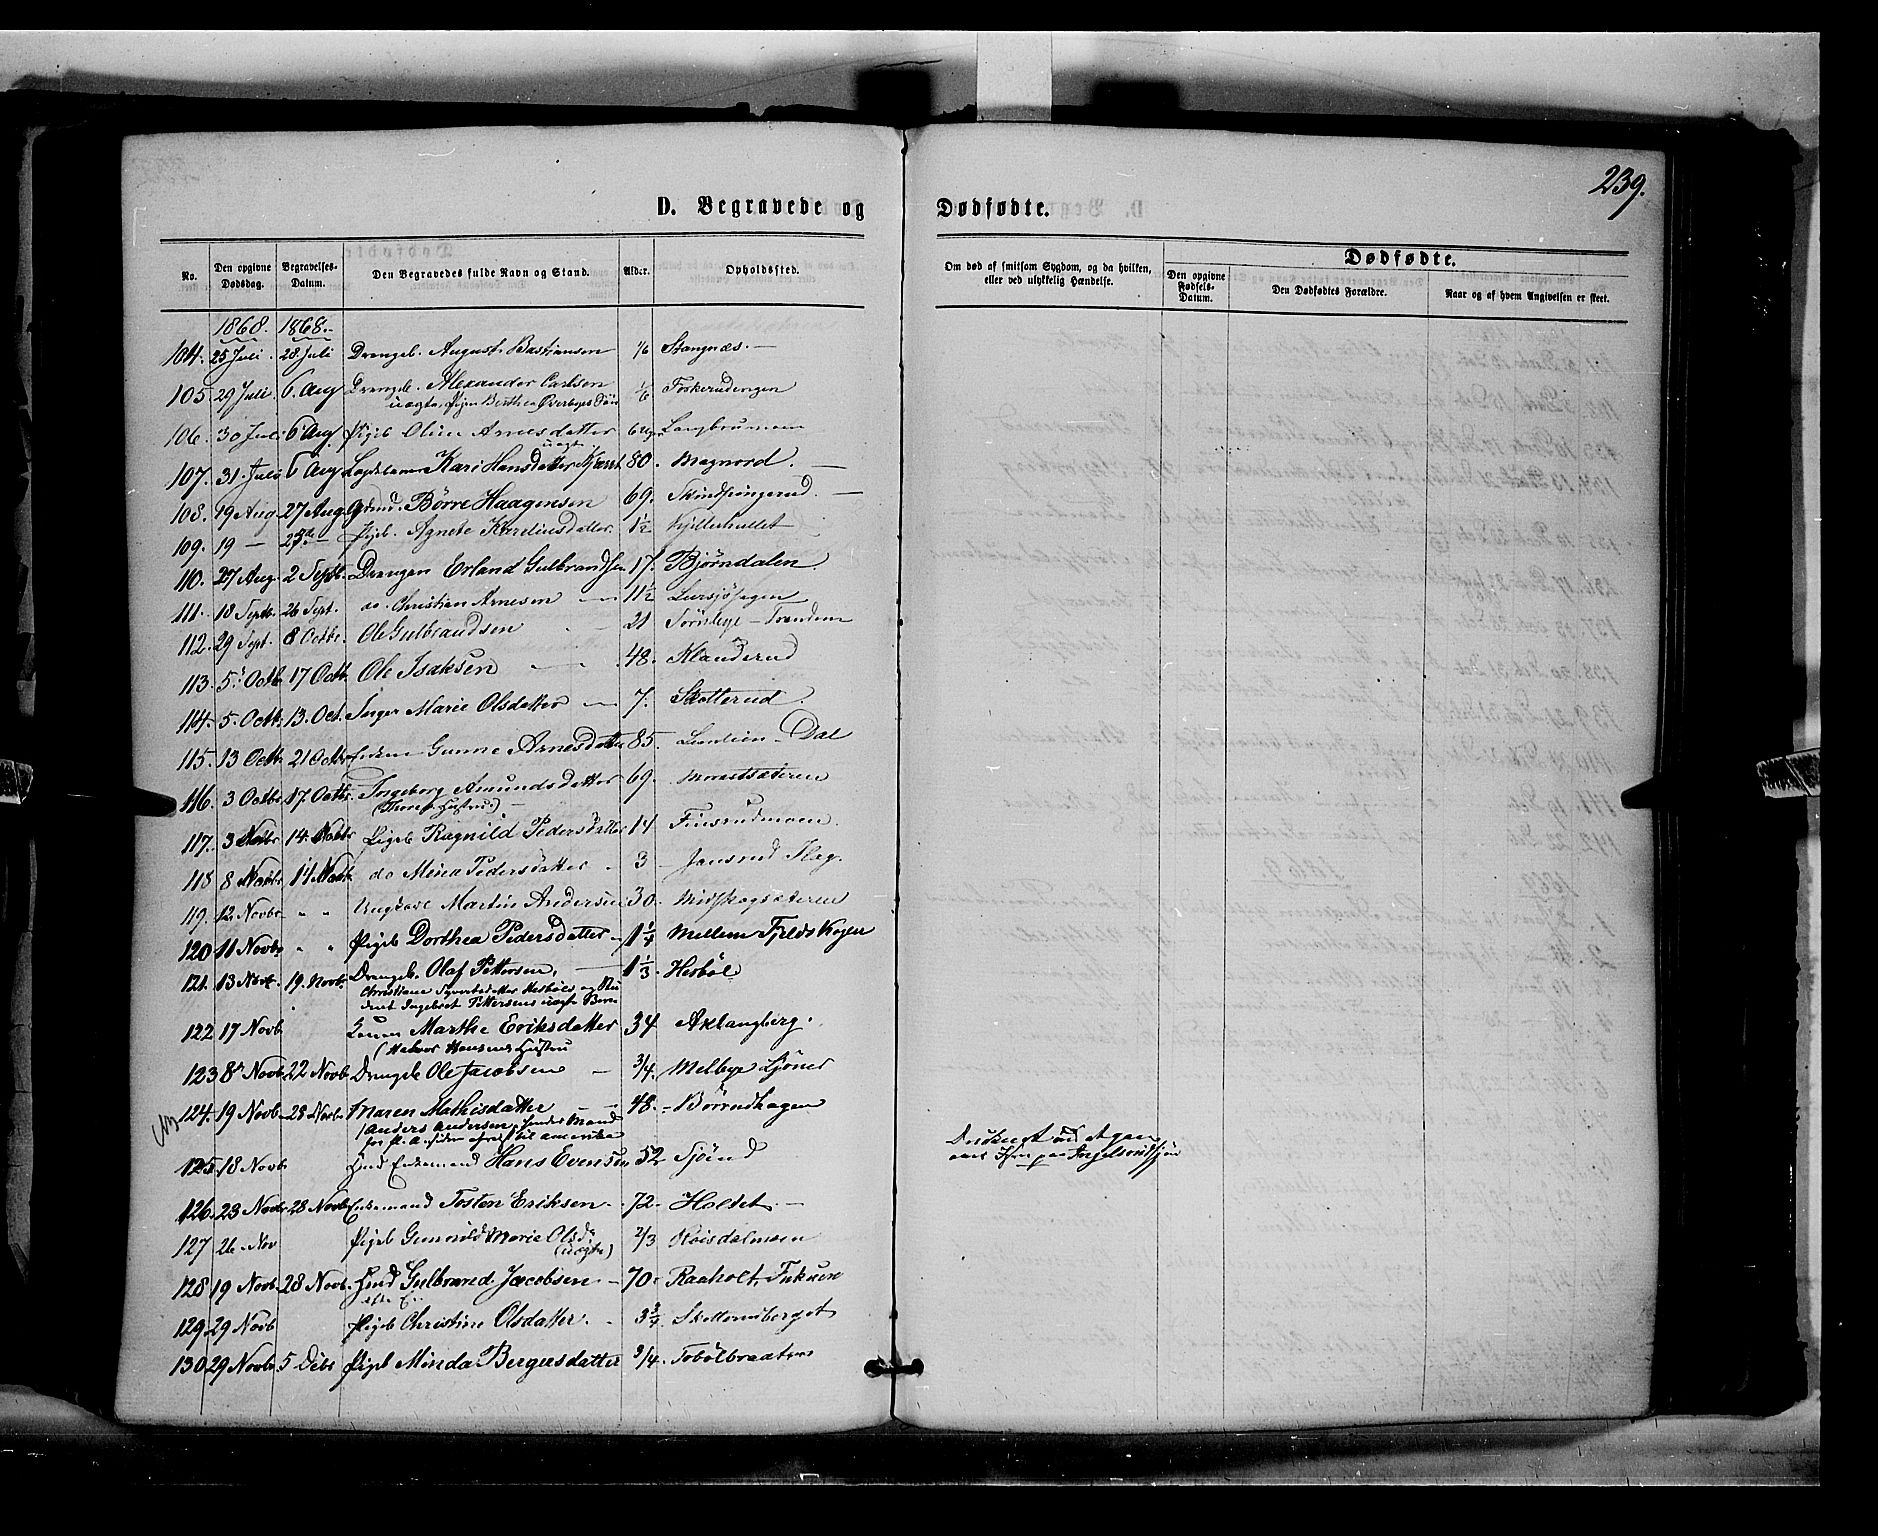 239.
D. Begravede og Dødfødte.
No. Den opgivne Dødsdag. Begravelses-Datum. Den Begravedes fulde Navn og Stand. Alder. Opholdssted. Om død af smitsom Sygdom, og da hvilken, eller ved ulykkelig Hændelse. Dødfødte.
Den opgivne Fødsels-Datum. Den Dødfødtes Forældre. Naar og af hvem Angivelsen er skeet.
1868. 1868.
104. 25 Juli 28 Juli Drengeb. August Bastiansen 1/6 Stangnæs. —
105. 29 Juli 6. Aug Drengb. Alexander Carlsen 1/6 Foskerudengen
uægte, Pigen Berthea Øverbyes Søn
106. 30 Juli 6 Aug Pigeb. Oline Arnesdatter Langbrunnen
uægte
107. 31. Juli 6 Aug Kari Hansdatter 80. Magnord. —
108. 19 Aug 27 Aug Børre Haagensen 69. —
109. 19 — 27de — Pigeb. Agnete Kareliusdatter 1½ —
110. 27 Aug. 2 Septb. Drengen Erland Gulbrandsen 17. Bjørndalen.
111. 18 Septb. 26 Sept. do. Christian Arnesen — 11½ Lursjøhagen
112. 29 Sept. 8 Octbr. Ole Gulbrandsen 21 Tørsbye —
113. 5. Octb 17 Octb. Ole Isaksen — 48. Klanderud
114. 5. Octb. 13. Oct. Inger Marie Olsdatter — 7. Skotterud.
115. 13 Octb 21 Octbr. Enken Gunne Arnesdatter 85. — Dal
116. 3 Octbr. 17. Octbr. Ingeborg Amundsdatter 69.
117. 3 Novbr 14. Novbr Pigeb. Ragnild Pedersdatter 14 Finsrudmoen.
118 8 Novbr 14 Novb. do Mina Pedersdatter 3 Jansrud Flag.
119. 12 Novbr " " Ungkarl Martin Andersen 30. Midskogsæteren
120 11 Novbr " " Pigeb Dorthea Pedersdatter 1¼ Mellem Fjelds Kogen
121. 13 Novb. 19. Novb. Drengeb. Olaf Pettersen, — 1⅓ Herbøl
122 17 Novb. Konen Marthe Eriksdatter 34 Aklangberg.
(Halvor Hansens Hustru
123 8 Novb. 22 Novb. Drengeb Ole Jacobsen — 3/4. Melbye
NB
124. 19 Novb. 28 Novb. Maren Mathisdatter 48. Børrudhagen
(Anders Andersen, hendes Mand
til Amerika
125. 18 Novbr Enkemand Hans Evensen 52 Sjønd
126. 23 Novbr. 28 Novb. Enkemand Tosten Eriksen. 72. Holdet. —
127 26 Nov Pigeb Gunnild Marie Olsd. 2/3 Røisdalmoen
(uægte)
128 19 Novb. 28 Novb. Gulbrand Jacobsen — 70. Raaholt,
129. 29 Novb Pigeb Christine Olsdatter. 3¾
130 29 Novbr 5 Debr Pigeb Minda Bergersdatter 3/4